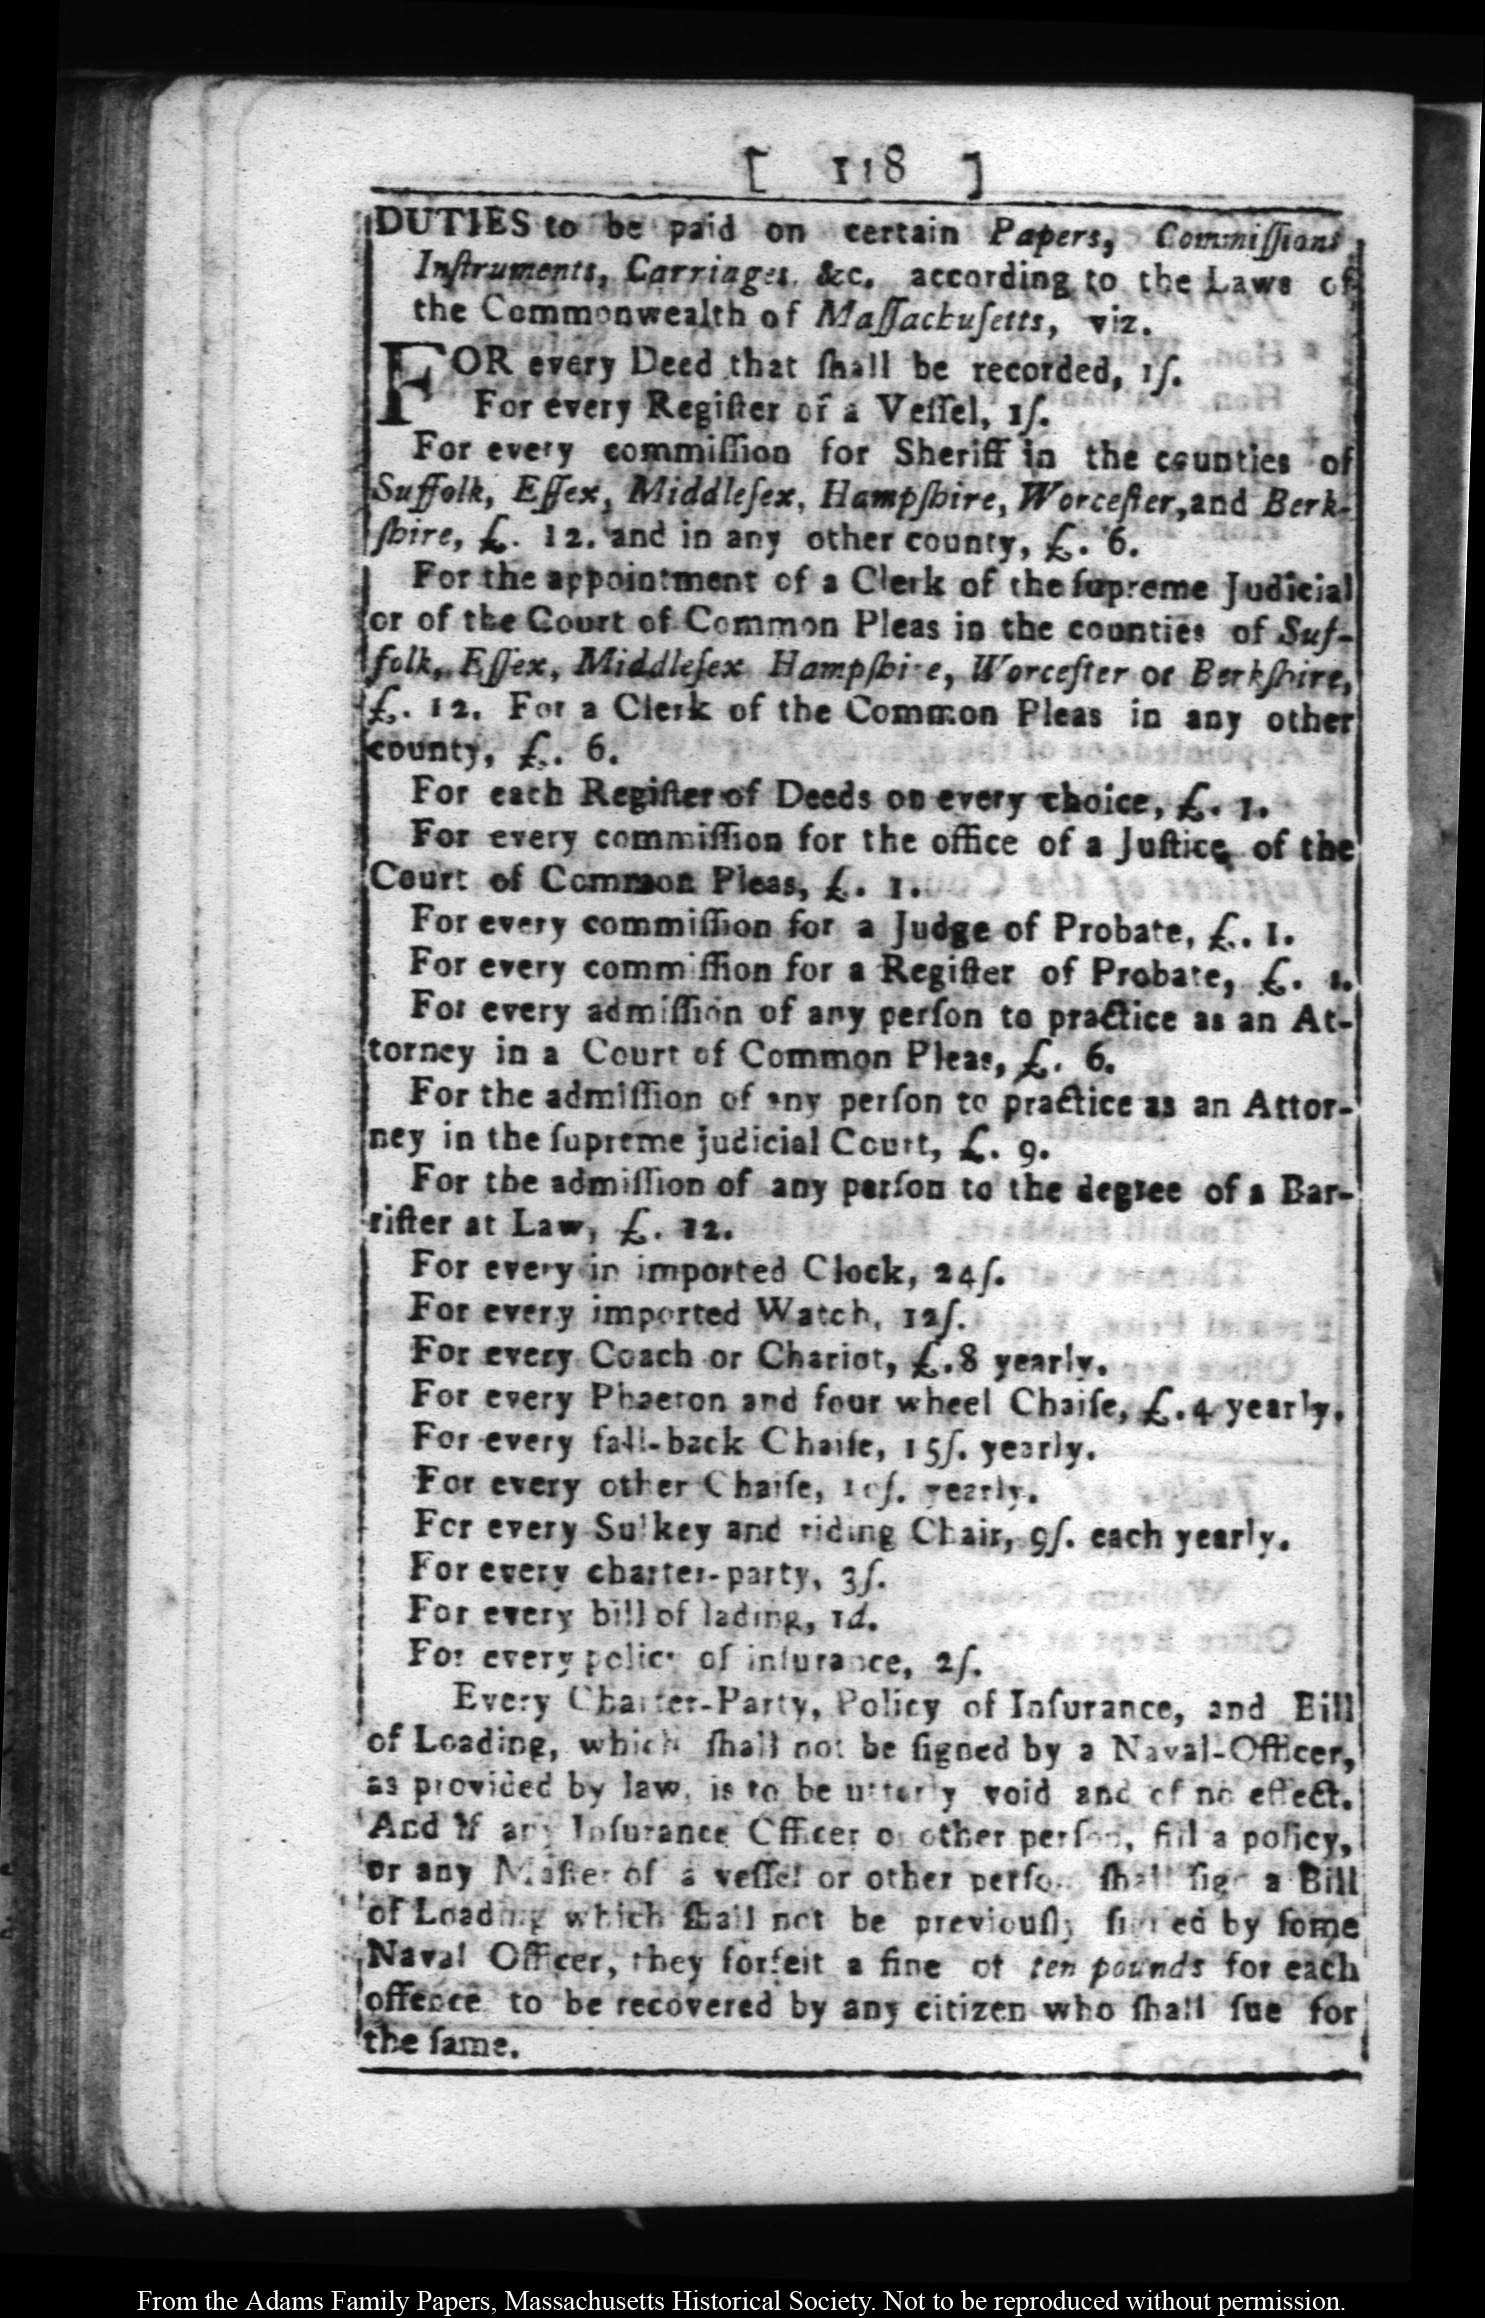 [ 118 ]
DUTIES to be paid on certain Papers, Commiſſions
Inſtruments, Carriages, &c. according to the Laws of
the Commonwealth of Maſſachuſetts, viz.
FOR every Deed that ſhall be recorded, 1ſ.
For every Regiſter of a Veſſel, 1ſ.
For every commiſſion for Sheriff in the counties of
Suffolk, Eſſex, Middleſex, Hampſhire, Worceſter, and Berk-
ſhire, £. 12. and in any other county, £. 6.
For the appointment of a Clerk of the ſupreme Judicial
or of the Court of Common Pleas in the counties of Suf-
folk, Eſſex, Middleſex Hampſhire, Worceſter or Berkſhire,
£. 12. For a Clerk of the Common Pleas in any other
county, £. 6.
For each Regiſter of Deeds on every choice, £. 1.
For every commiſſion for the office of a Juſtice of the
Court of Common Pleas, £. 1.
For every commiſſion for a Judge of Probate, £. 1.
For every commiſſion for a Regiſter of Probate, £. 1.
For every admiſſion of any perſon to practice as an At-
torney in a Court of Common Pleas, £. 6.
For the admiſſion of any perſon to practice as an Attor-
ney in the ſupreme judicial Court, £. 9.
For the admiſſion of any perſon to the degree of a Bar-
riſter at Law, £. 12.
For every in imported Clock, 24ſ.
For every imported Watch, 12ſ.
For every Coach or Chariot, £.8 yearly.
For every Phaeton and four wheel Chaiſe, £.4 yearly.
For every fall-back Chaiſe, 15ſ. yearly.
For every other Chaiſe, 10ſ. yearly.
For every Sulkey and riding Chair, 9ſ. each yearly.
For every charter-party, 3ſ.
For every bill of lading, 1d.
For every policy of inſurance, 2ſ.
Every Charter-Party, Policy of Inſurance, and Bill
of Loading, which ſhall not be ſigned by a Naval-Officer,
as provided by law, is to be utterly void and of no effect.
And if any Inſurance Officer or other perſon, fill a policy,
or any Maſter of a veſſel or other perſon ſhall ſign a Bill
of Loading which ſhall not be previouſly ſigned by ſome
Naval Officer, they forfeit a fine of ten pounds for each
offence to be recovered by any citizen who ſhall ſue for
the ſame.
From the Adams Family Papers, Massachusetts Historical Society. Not to be reproduced without permission.